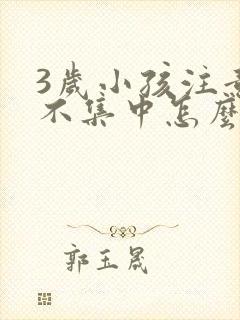 3歲小孩注
不集中怎麼
郭玉晟